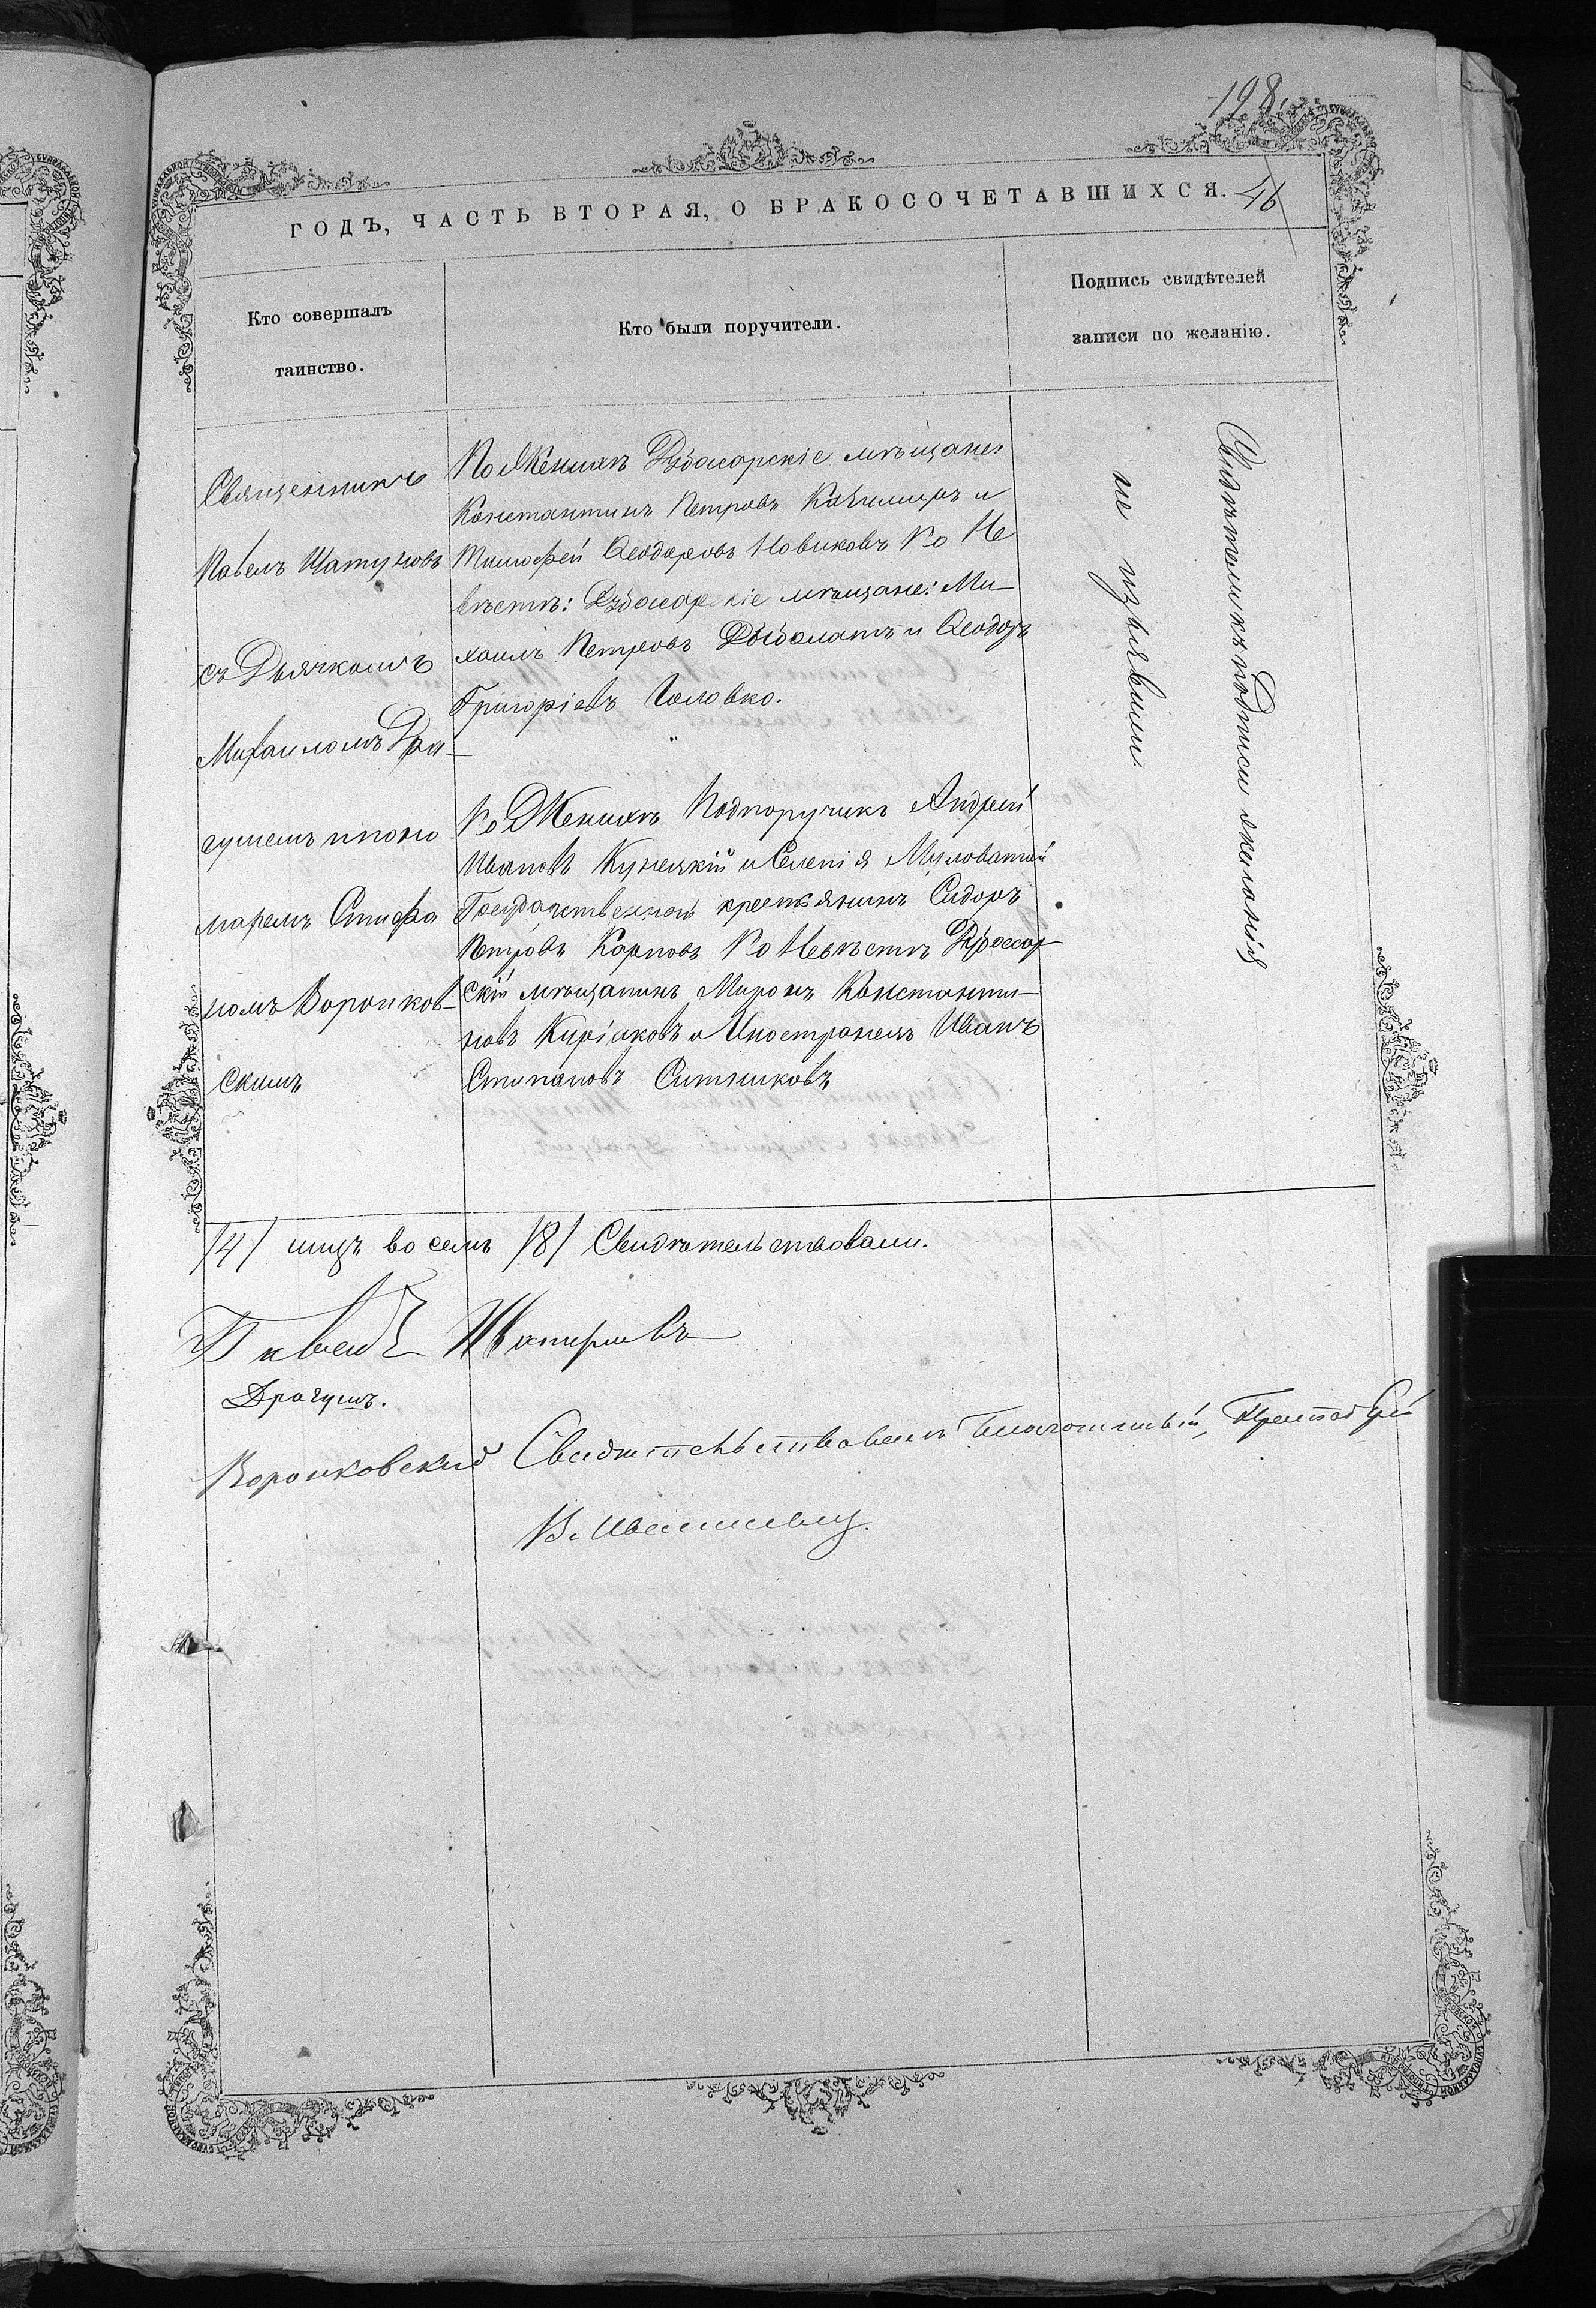 198.
46
ГОДЪ, ЧАСТЬ ВТОРАЯ, О БРАКОСОЧЕТАВШИХСЯ.
Кто совершалъ
таинство.
Кто были поручители.
Подпись свидѣтелей
записи по желанію.
Священникъ
Павелъ Шатуновъ
съ Дьячкомъ
Михаиломъ Дра-
гушемъ и поно
маремъ Стефа
номъ Воронков-
скимъ
По Женихѣ Дубосарскіе мѣщане:
Константинъ Петровъ и
Тимофей Ѳеодоровъ Новиковъ По Не
вѣстѣ: Дубосарскіе мѣщане: Ми-
хаилъ Петровъ и Ѳеодоръ
Григоріевъ Головко.
По Женихѣ Подпоручикъ Андрей
Ивановъ и Селенія Муловатой
Государственной крестьянинъ Сидоръ
Петровъ Карповъ По Невѣстѣ Дубоссар-
скій мѣщанинъ Миронъ Константи-
новъ Киріаковъ и Иностранецъ Иванъ
Стипановъ Ситниковъ
Свидѣтели къ подписи желанія
не изъявили.
/4/ лицъ восемь /8/ Свидѣтельствовали.
Павелъ
Драгушъ.
Воронковскій
Свидѣтельствовалъ Благочинный,